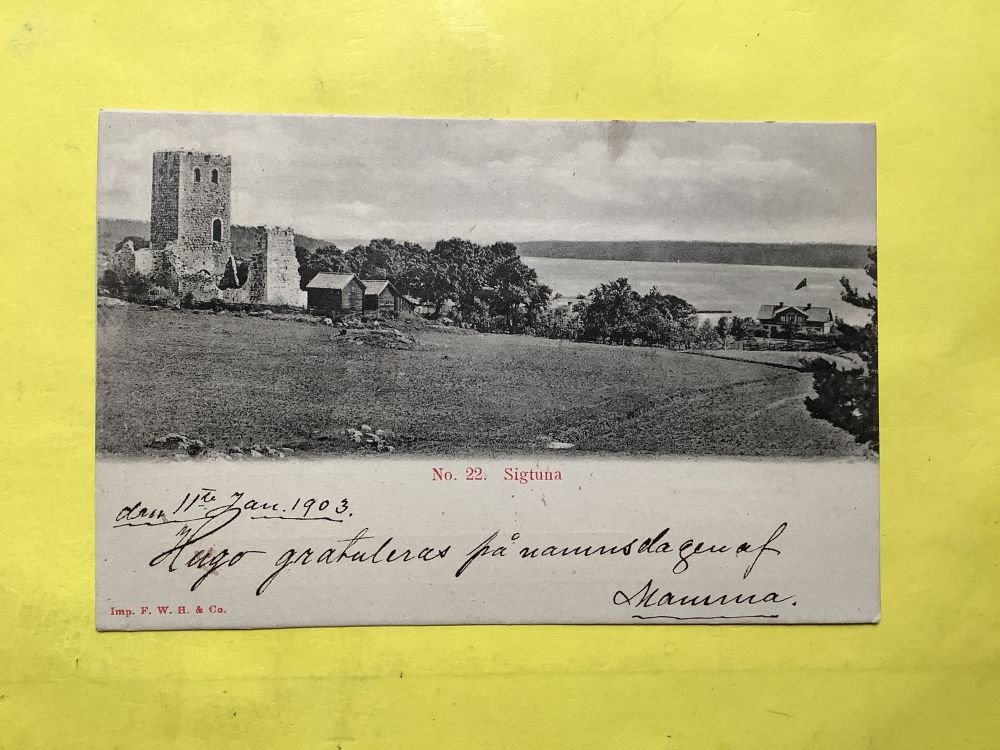 No. 22. Sigtuna
den 11te Jan. 1903.
Hugo gratuleras på namnsdagen af
Mamma.
Imp. F. W. H. & Co.